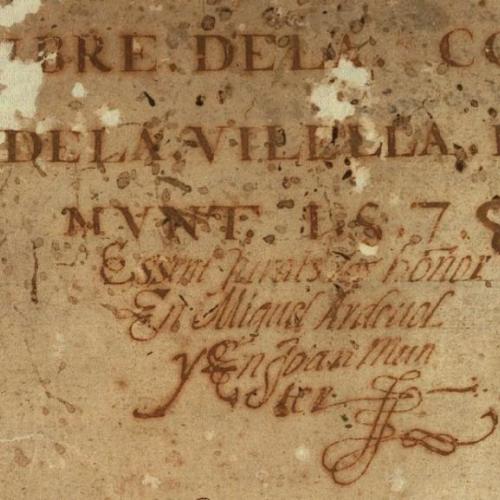 BRE. DE LA. CO
DE LA. VILELLA.
MVNT. 1. 5. 7.
Essent Jurats los honor
En Miquel Ardeuol
y En Joan Mun
ter